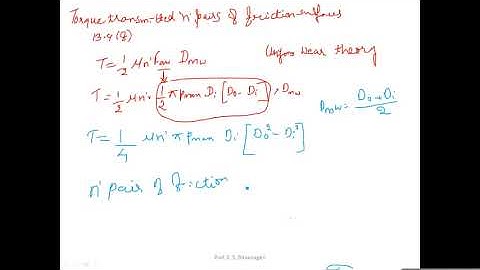 Torque transmitted n' pairs of friction surfaces
13.4(g)
T = 1/2 μ n' Faw Dmw (Uniform Wear theory)
T = 1/2 μ n' · 1/2 π Pmax Di [Do - Di] · Dmw Dmw = Do + Di / 2
T = 1/4 μ n' π Pmax Di [Do² - Di²]
n' pair of friction
Prof. S. S.